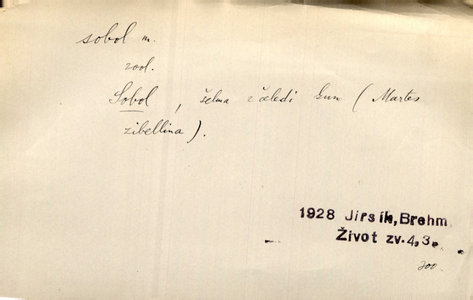 sobol m.
zool.
Sobol, šelma z čeledi kun (Martes
zibellina).
1928 Jirsík, Brehm
Život zv. 4, 3.
zoo.